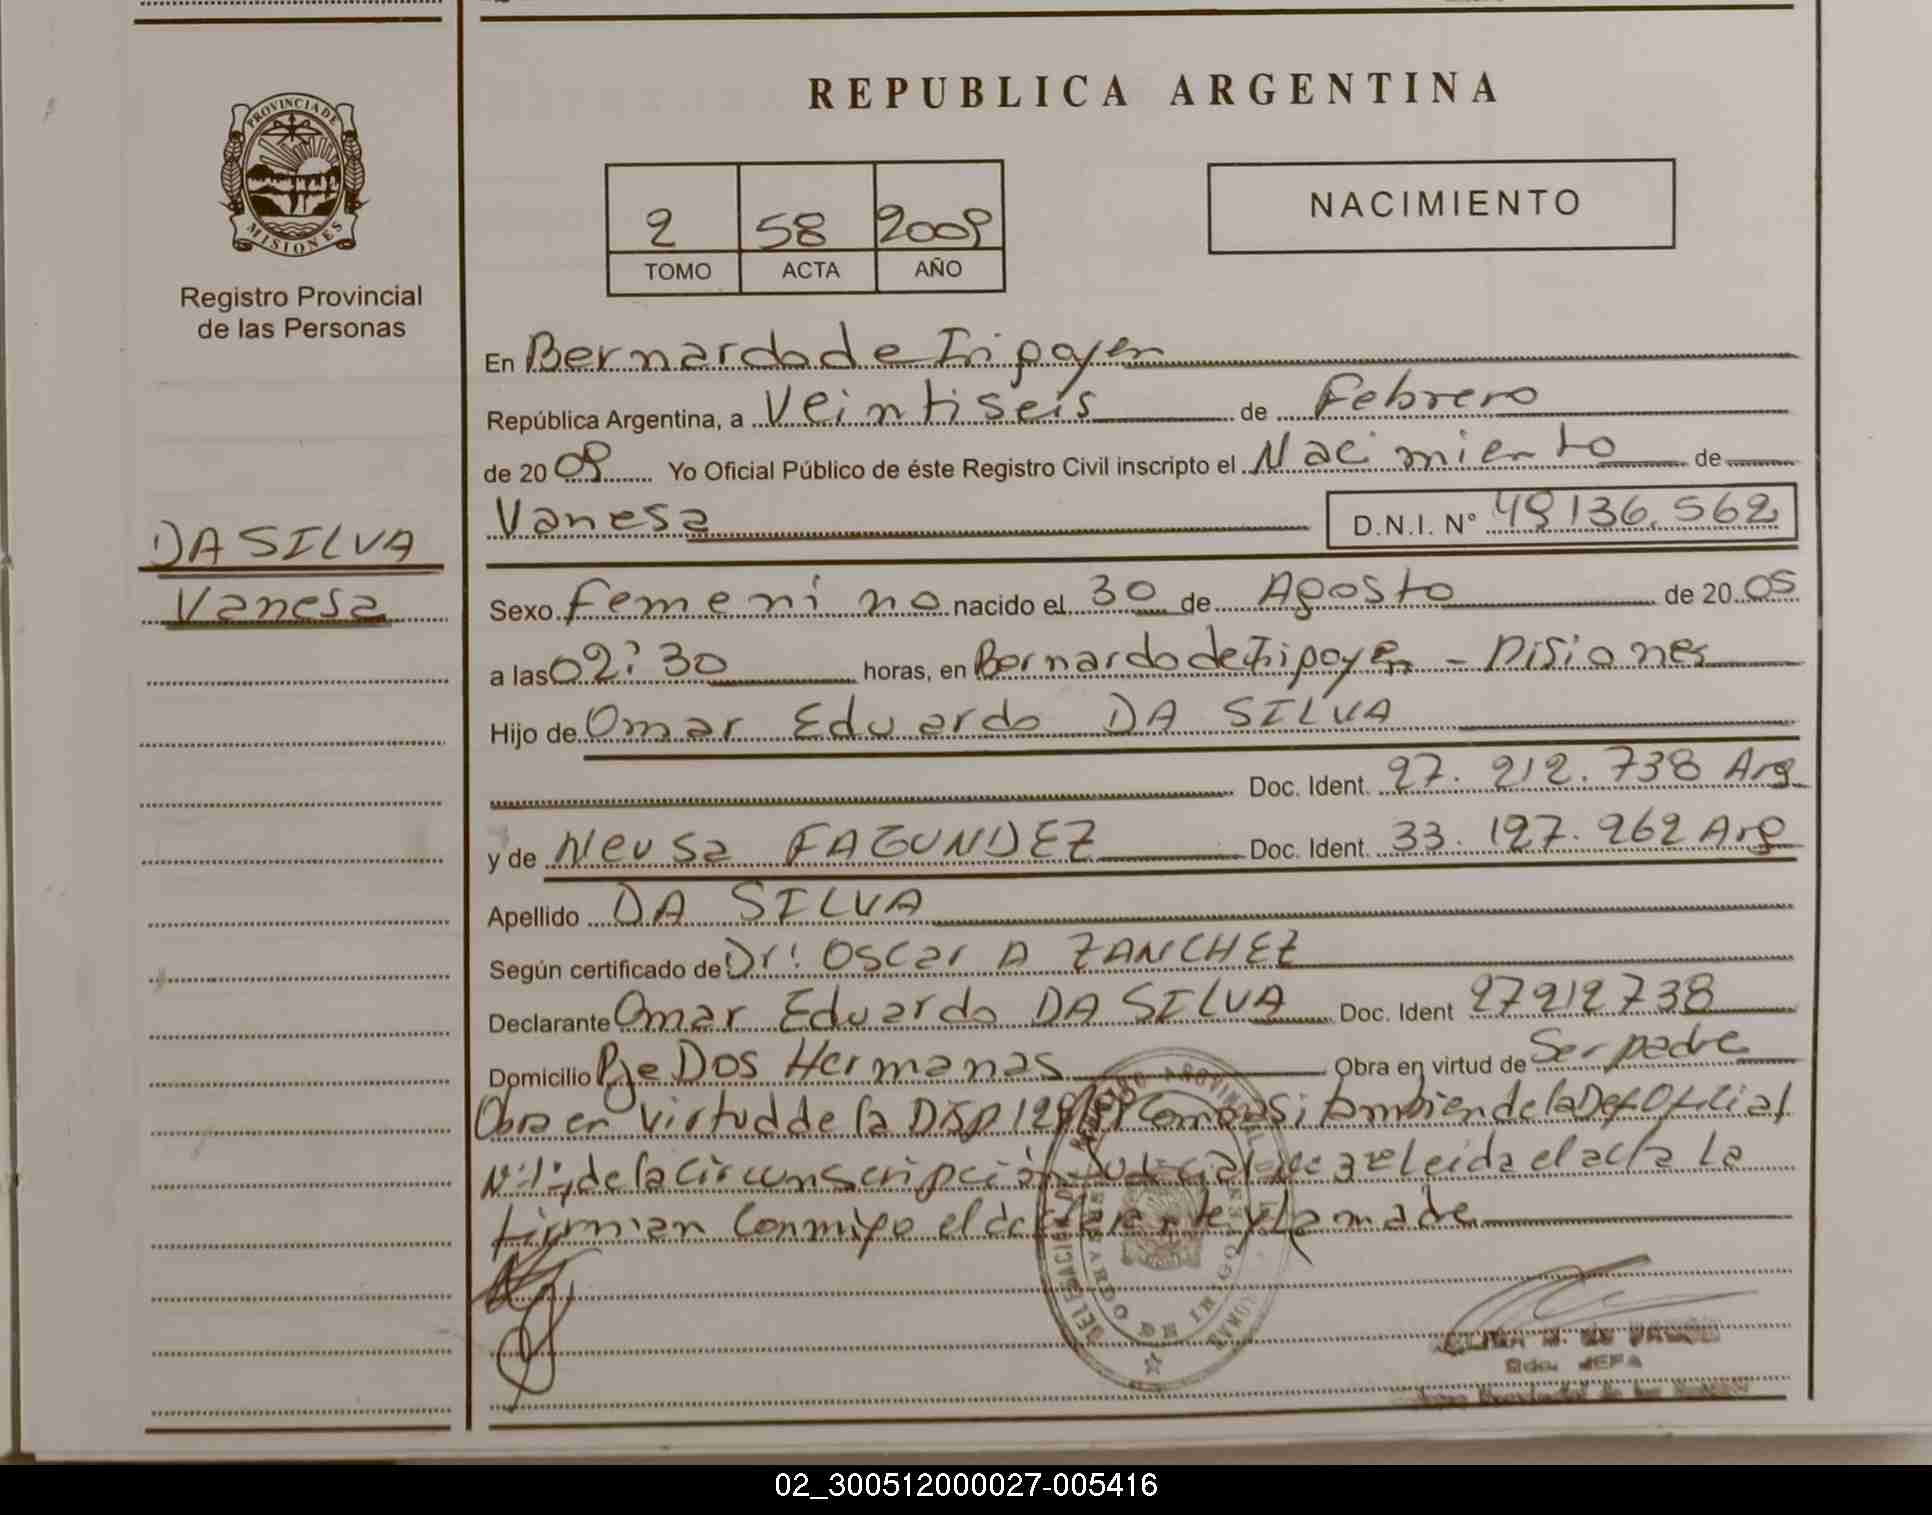 PROVINCIA DE
MISIONES
Registro Provincial
de las Personas
DA SILVA
Vanesa
REPUBLICA ARGENTINA
2 58 2009
TOMO ACTA AÑO
NACIMIENTO
En Bernardo de Irigoyen
República Argentina, a Veintiseis de Febrero
de 20 09 Yo Oficial Público de éste Registro Civil inscripto el Nacimiento de
Vanesa D.N.I. N° 49136.562
Sexo Femenino nacido el 30 de Agosto de 20 05
a las 02:30 horas, en Bernardo de Irigoyen - Misiones
Hijo de Omar Eduardo DA SILVA
Doc. Ident. 27.212.738 Arg
y de Neusa FAGUNDEZ Doc. Ident. 33.127.262 Arg
Apellido DA SILVA
Según certificado de Dr: Oscar A ZANCHEZ
Declarante Omar Eduardo DA SILVA Doc. Ident 27212738
Domicilio Pje Dos Hermanas Obra en virtud de Ser padre
Obra en virtud de la Como asi tambien de la Def Oficial
de la Circunscripción Judicial leida el acta La
firman Conmigo el declarante y la madre
JEFA
02_300512000027-005416